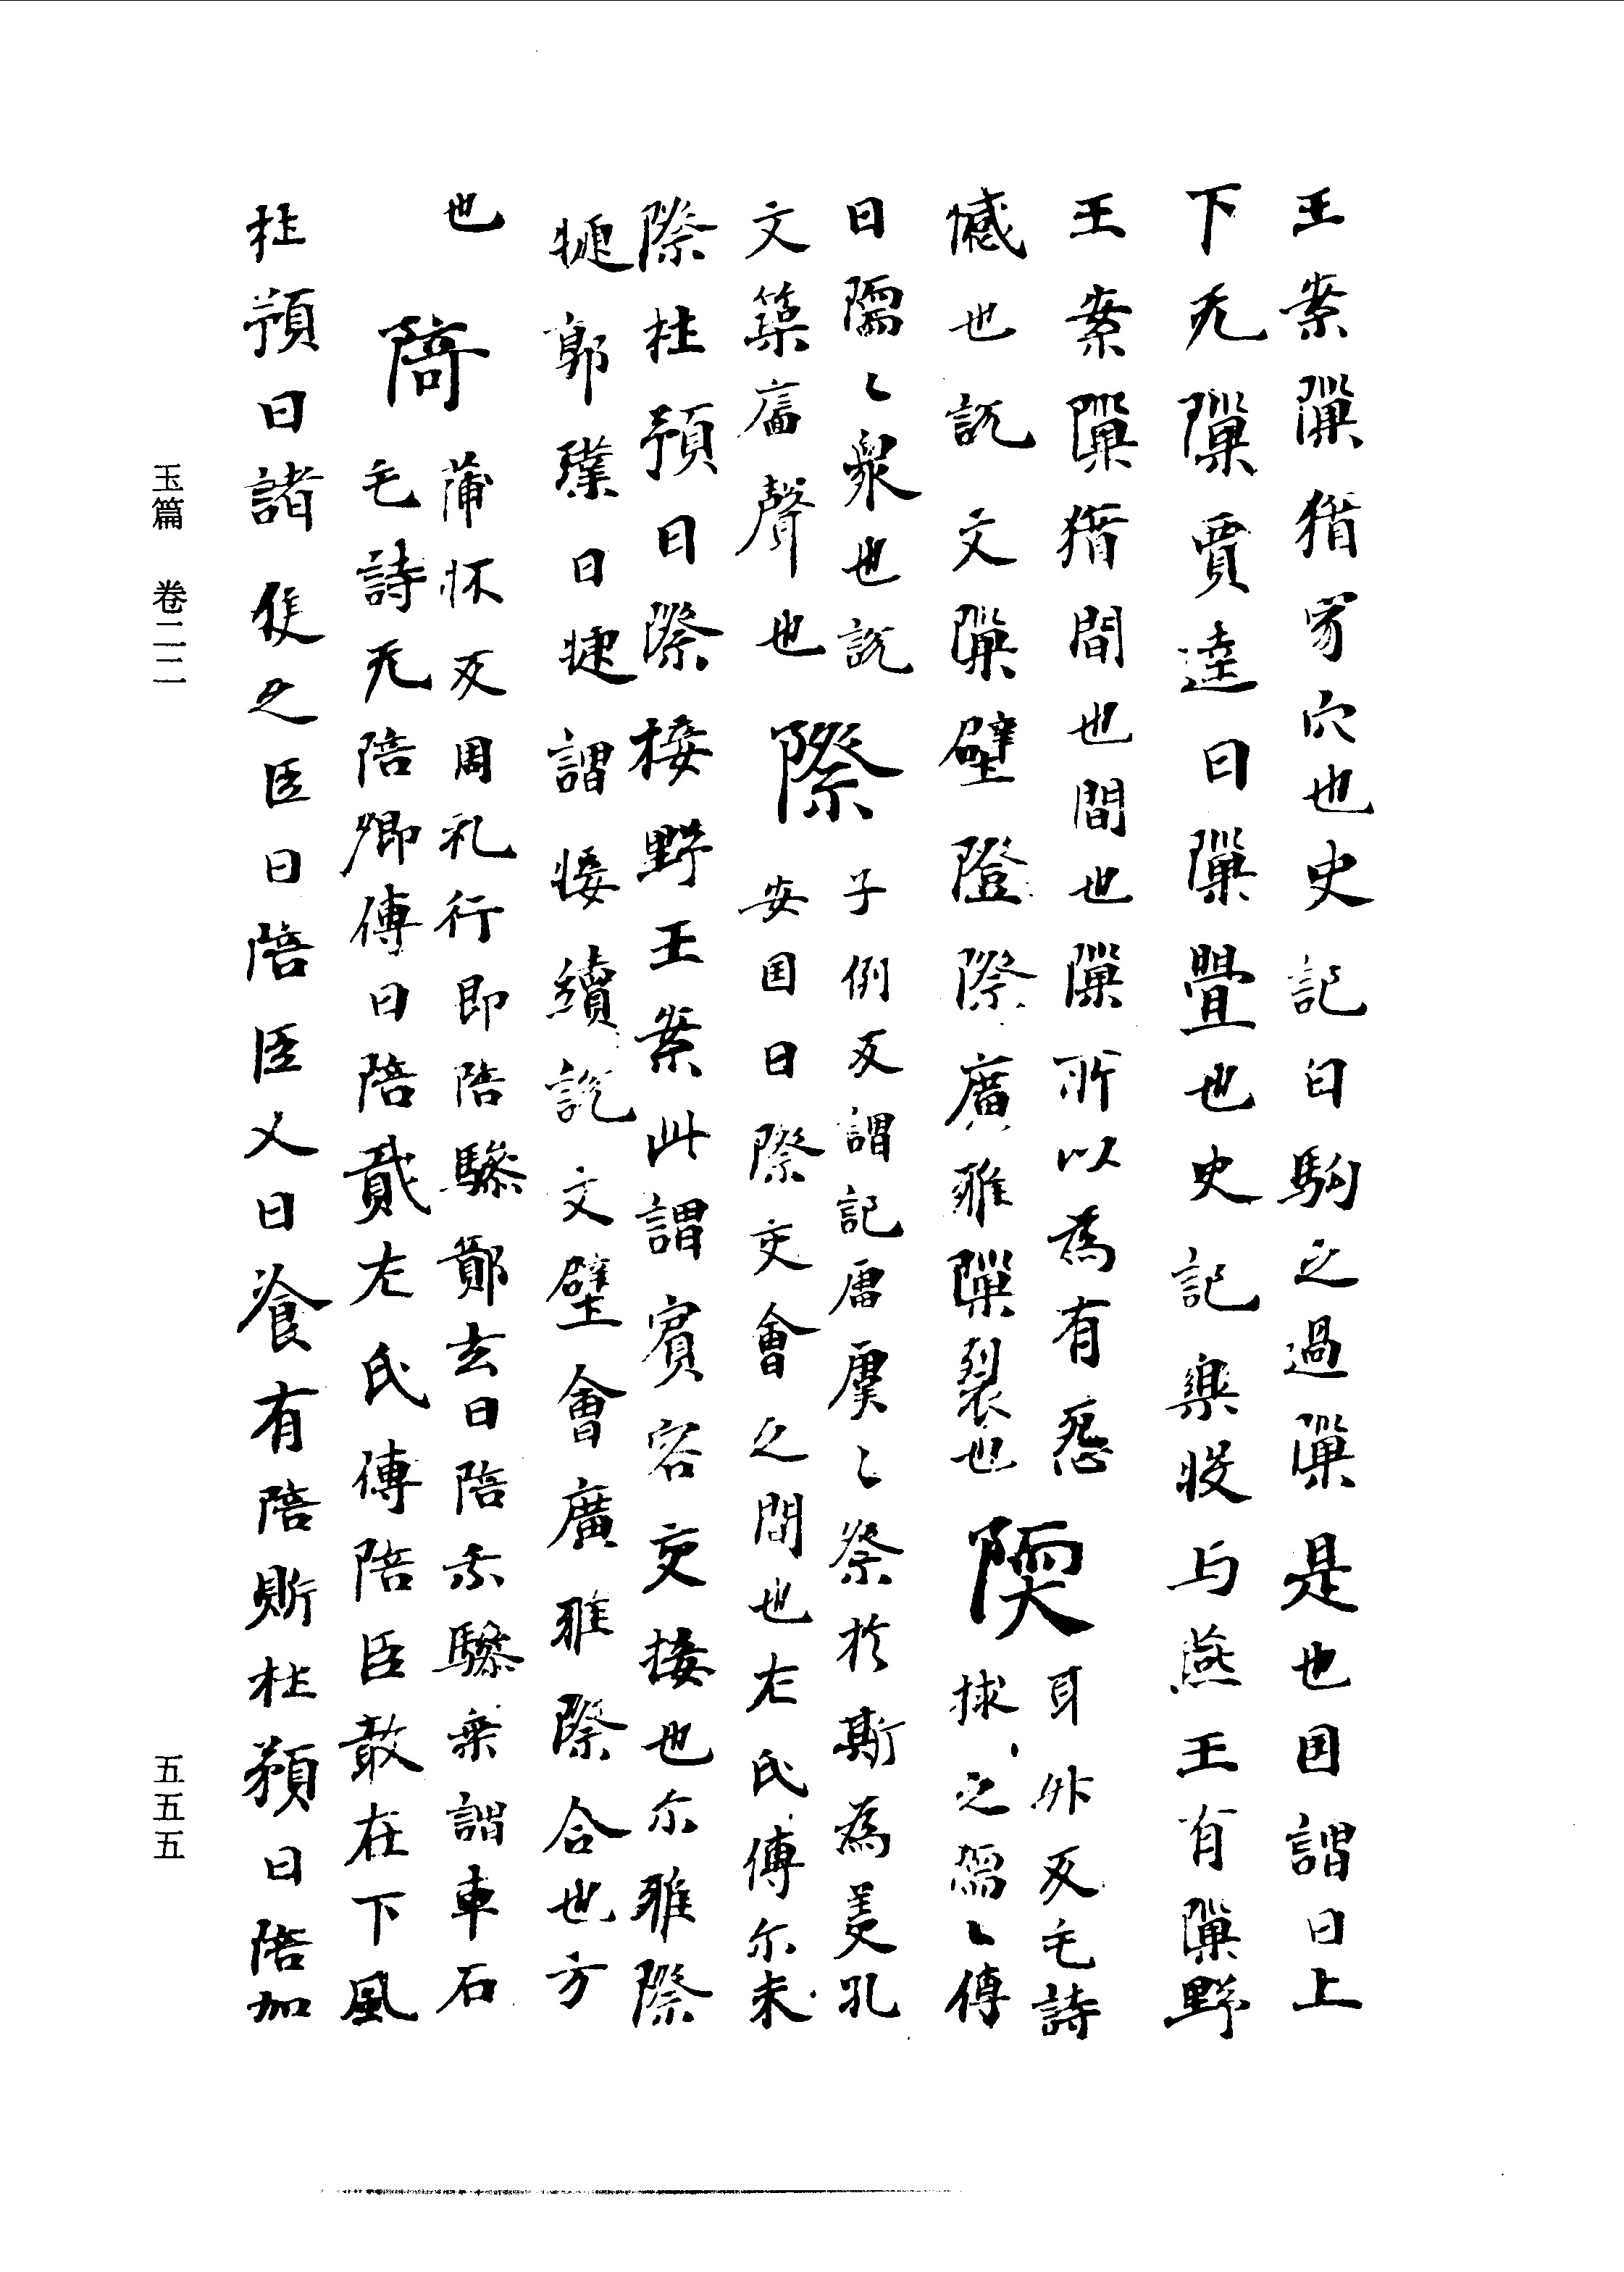 王案隟猶穿穴也史記曰駒之過隟是也国謂曰上
下无隟賈逵曰隟舋也史記樂毅与燕王有隟野
王案隟猶間也間也隟所以為有怨
憾也説文隟壁隥際廣雅隟裂也
陾
耳升反毛詩
捄之陾〻傳
曰陾〻衆也説
文築牆聲也
際
子例反謂記唐虞〻祭於斯為美孔
安国曰際交會之間也左氏傳尓未
際杜預曰際接野王案此謂賓客交接也尓雅際
捷郭璞曰捷謂接續説文壁會廣雅際合也方
也
陪
蒲怀反周礼行即陪驂鄭玄曰陪乘驂乘謂車右
毛詩无陪卿傳曰陪貳左氏傳陪臣敢在下風
杜預曰諸侯之臣曰陪臣又曰飡有陪㪿杜預曰陪加
玉篇 卷二二
五五五